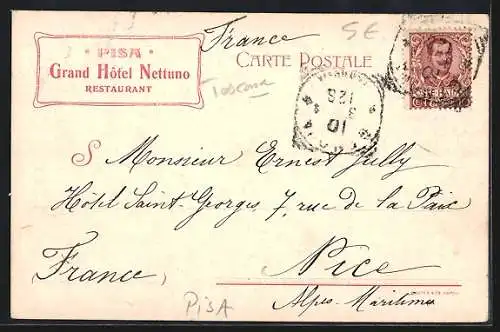 · PISA ·
Grand Hôtel Nettuno
RESTAURANT
France
5E
CARTE POSTALE
Toscana
12 S
10
S Monsieur Ernest Jully
Hôtel Saint-Georges 7, rue de la Paix
(France)
Nice
Alpes-Maritimes
PISA